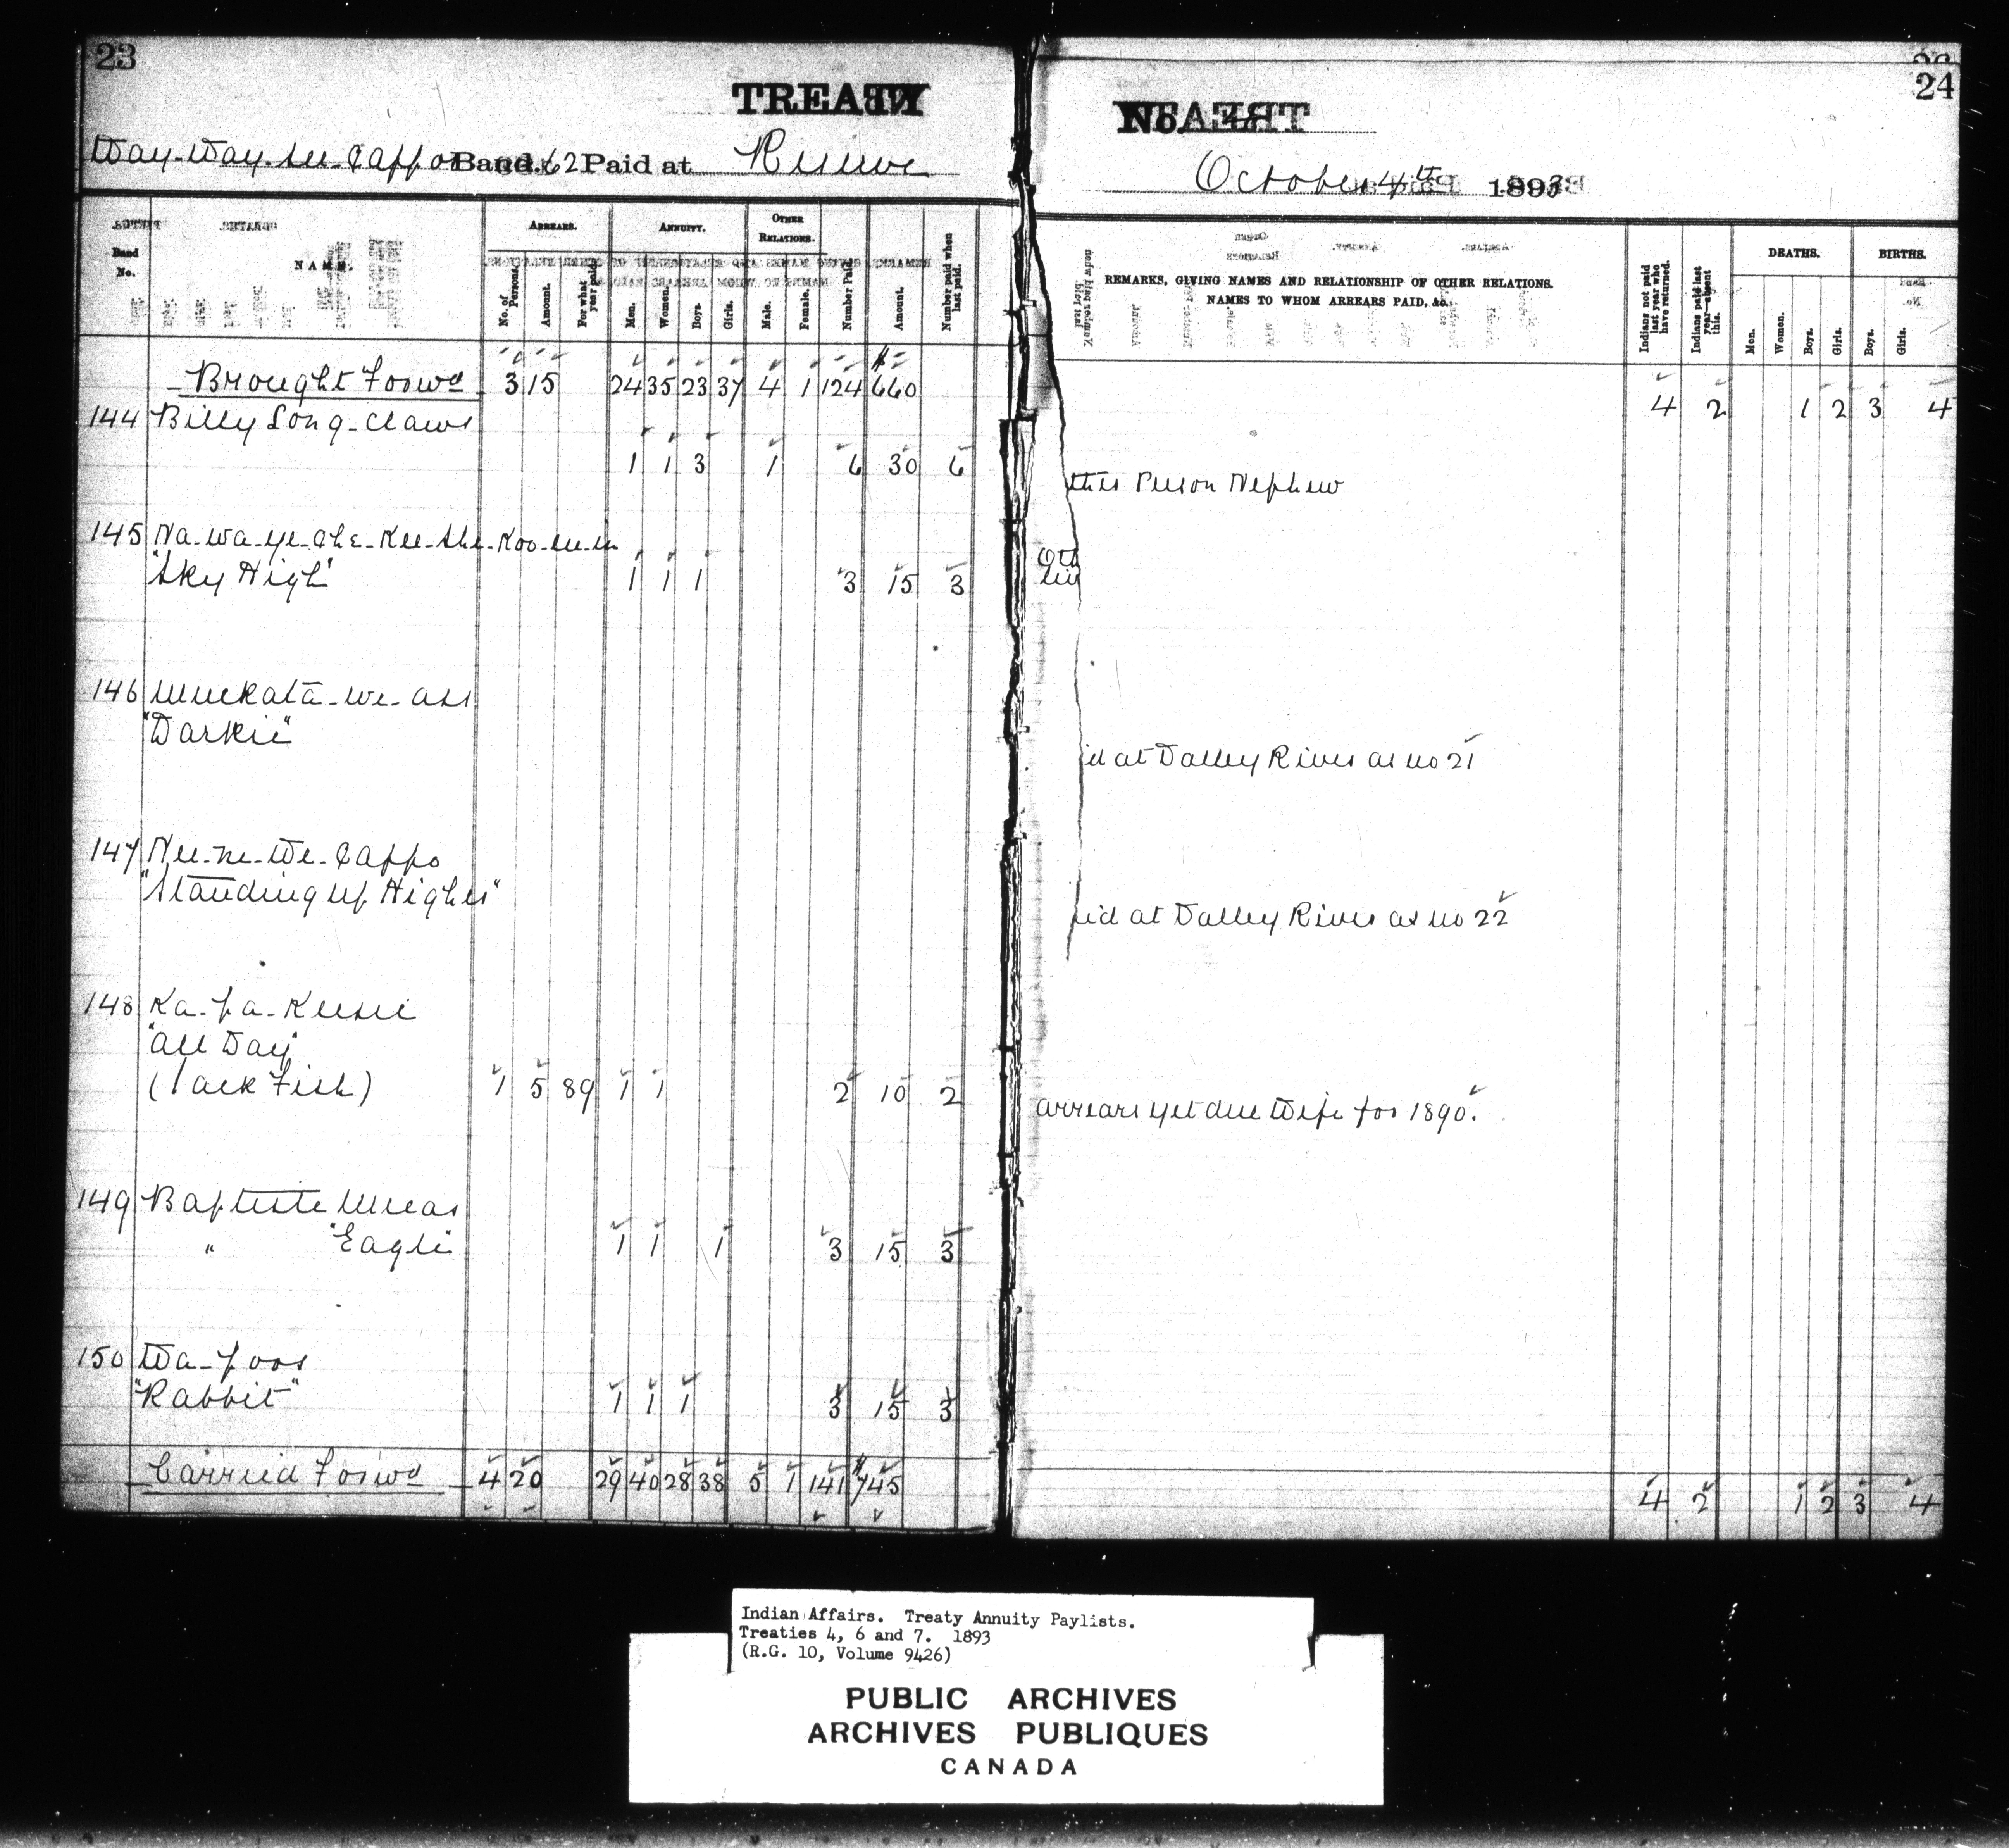 23
TREATY
Way-Way-see-Cappo Band. 62 Paid at Reserve
Band No.
NAME.
ARREARS.
No. of Persons.
Amount.
For what year paid.
ANNUITY.
Men.
Women.
Boys.
Girls.
OTHER RELATIONS.
Male.
Female.
Number Paid.
Amount.
Number paid when last paid.
Brought Forwd 3 15 24 35 23 37 4 1 124 $660
144 Billy Long-claws
1 1 3 1 6 30 6
145 Na-wa-ye-che-Kee-she-Koo-
"Sky High" 1 1 1 3 15 3
146 Muckata-we-ass
"Darkie"
147 Nee-ne-We-Cappo
"Standing up Higher"
148 Ka-pa-Keesic
"All Day"
(Jack Fish) 1 5 89 1 1 2 10 2
149 Baptiste
" "Eagle" 1 1 1 3 15 3
150 Wa-poos
"Rabbit" 1 1 1 3 15 3
Carried Forwd 4 20 29 40 28 38 5 1 141 $745
24
October 4th 1893
REMARKS, GIVING NAMES AND RELATIONSHIP OF OTHER RELATIONS.
NAMES TO WHOM ARREARS PAID, &c.
Indians not paid last year who have returned.
Indians paid last year—absent this.
DEATHS.
Men.
Women.
Boys.
Girls.
BIRTHS.
Boys.
Girls.
4 2 1 2 3 4
ther Person Nephew
Oth
id at Valley River as no 21
aid at Valley River as no 22
arrears yet due Wife for 1890.
4 2 1 2 3 4
Indian Affairs. Treaty Annuity Paylists.
Treaties 4, 6 and 7. 1893
(R.G. 10, Volume 9426)
PUBLIC ARCHIVES
ARCHIVES PUBLIQUES
CANADA